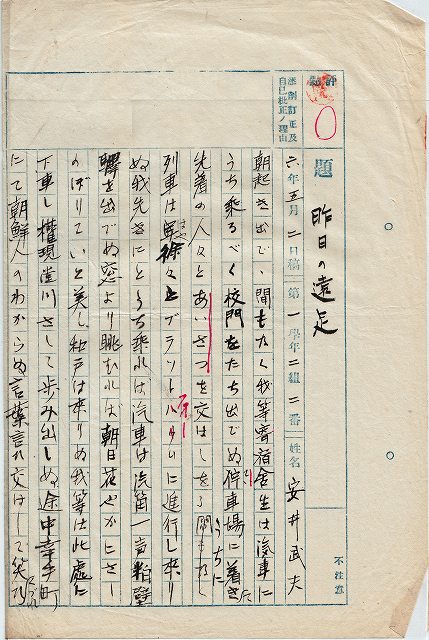 評點
添削訂正及
自己批正ノ理由
題 昨日の遠足
六年五月二日稿 第一學年二組二番 姓名 安井武夫
不注意
朝起き出で、間もなく我等寄宿舎生は汽車に
うち乘るべく校門をたち出でぬ停車場に着き
先着の人々とあいさつを交はしをる うちに
列車は 徐々とプラットホームに進行し來り
ぬ我先きにとうち乘れば汽車は汽笛一声粕壁
驛を出でぬ窓より眺むれば朝日花やかにさし
のぼりていと美し、和戸は來りぬ我等は此處に
下車し權現堂川さして歩み出しぬ途中幸手町
にて朝鮮人のわからぬ言葉言れ交はして笑